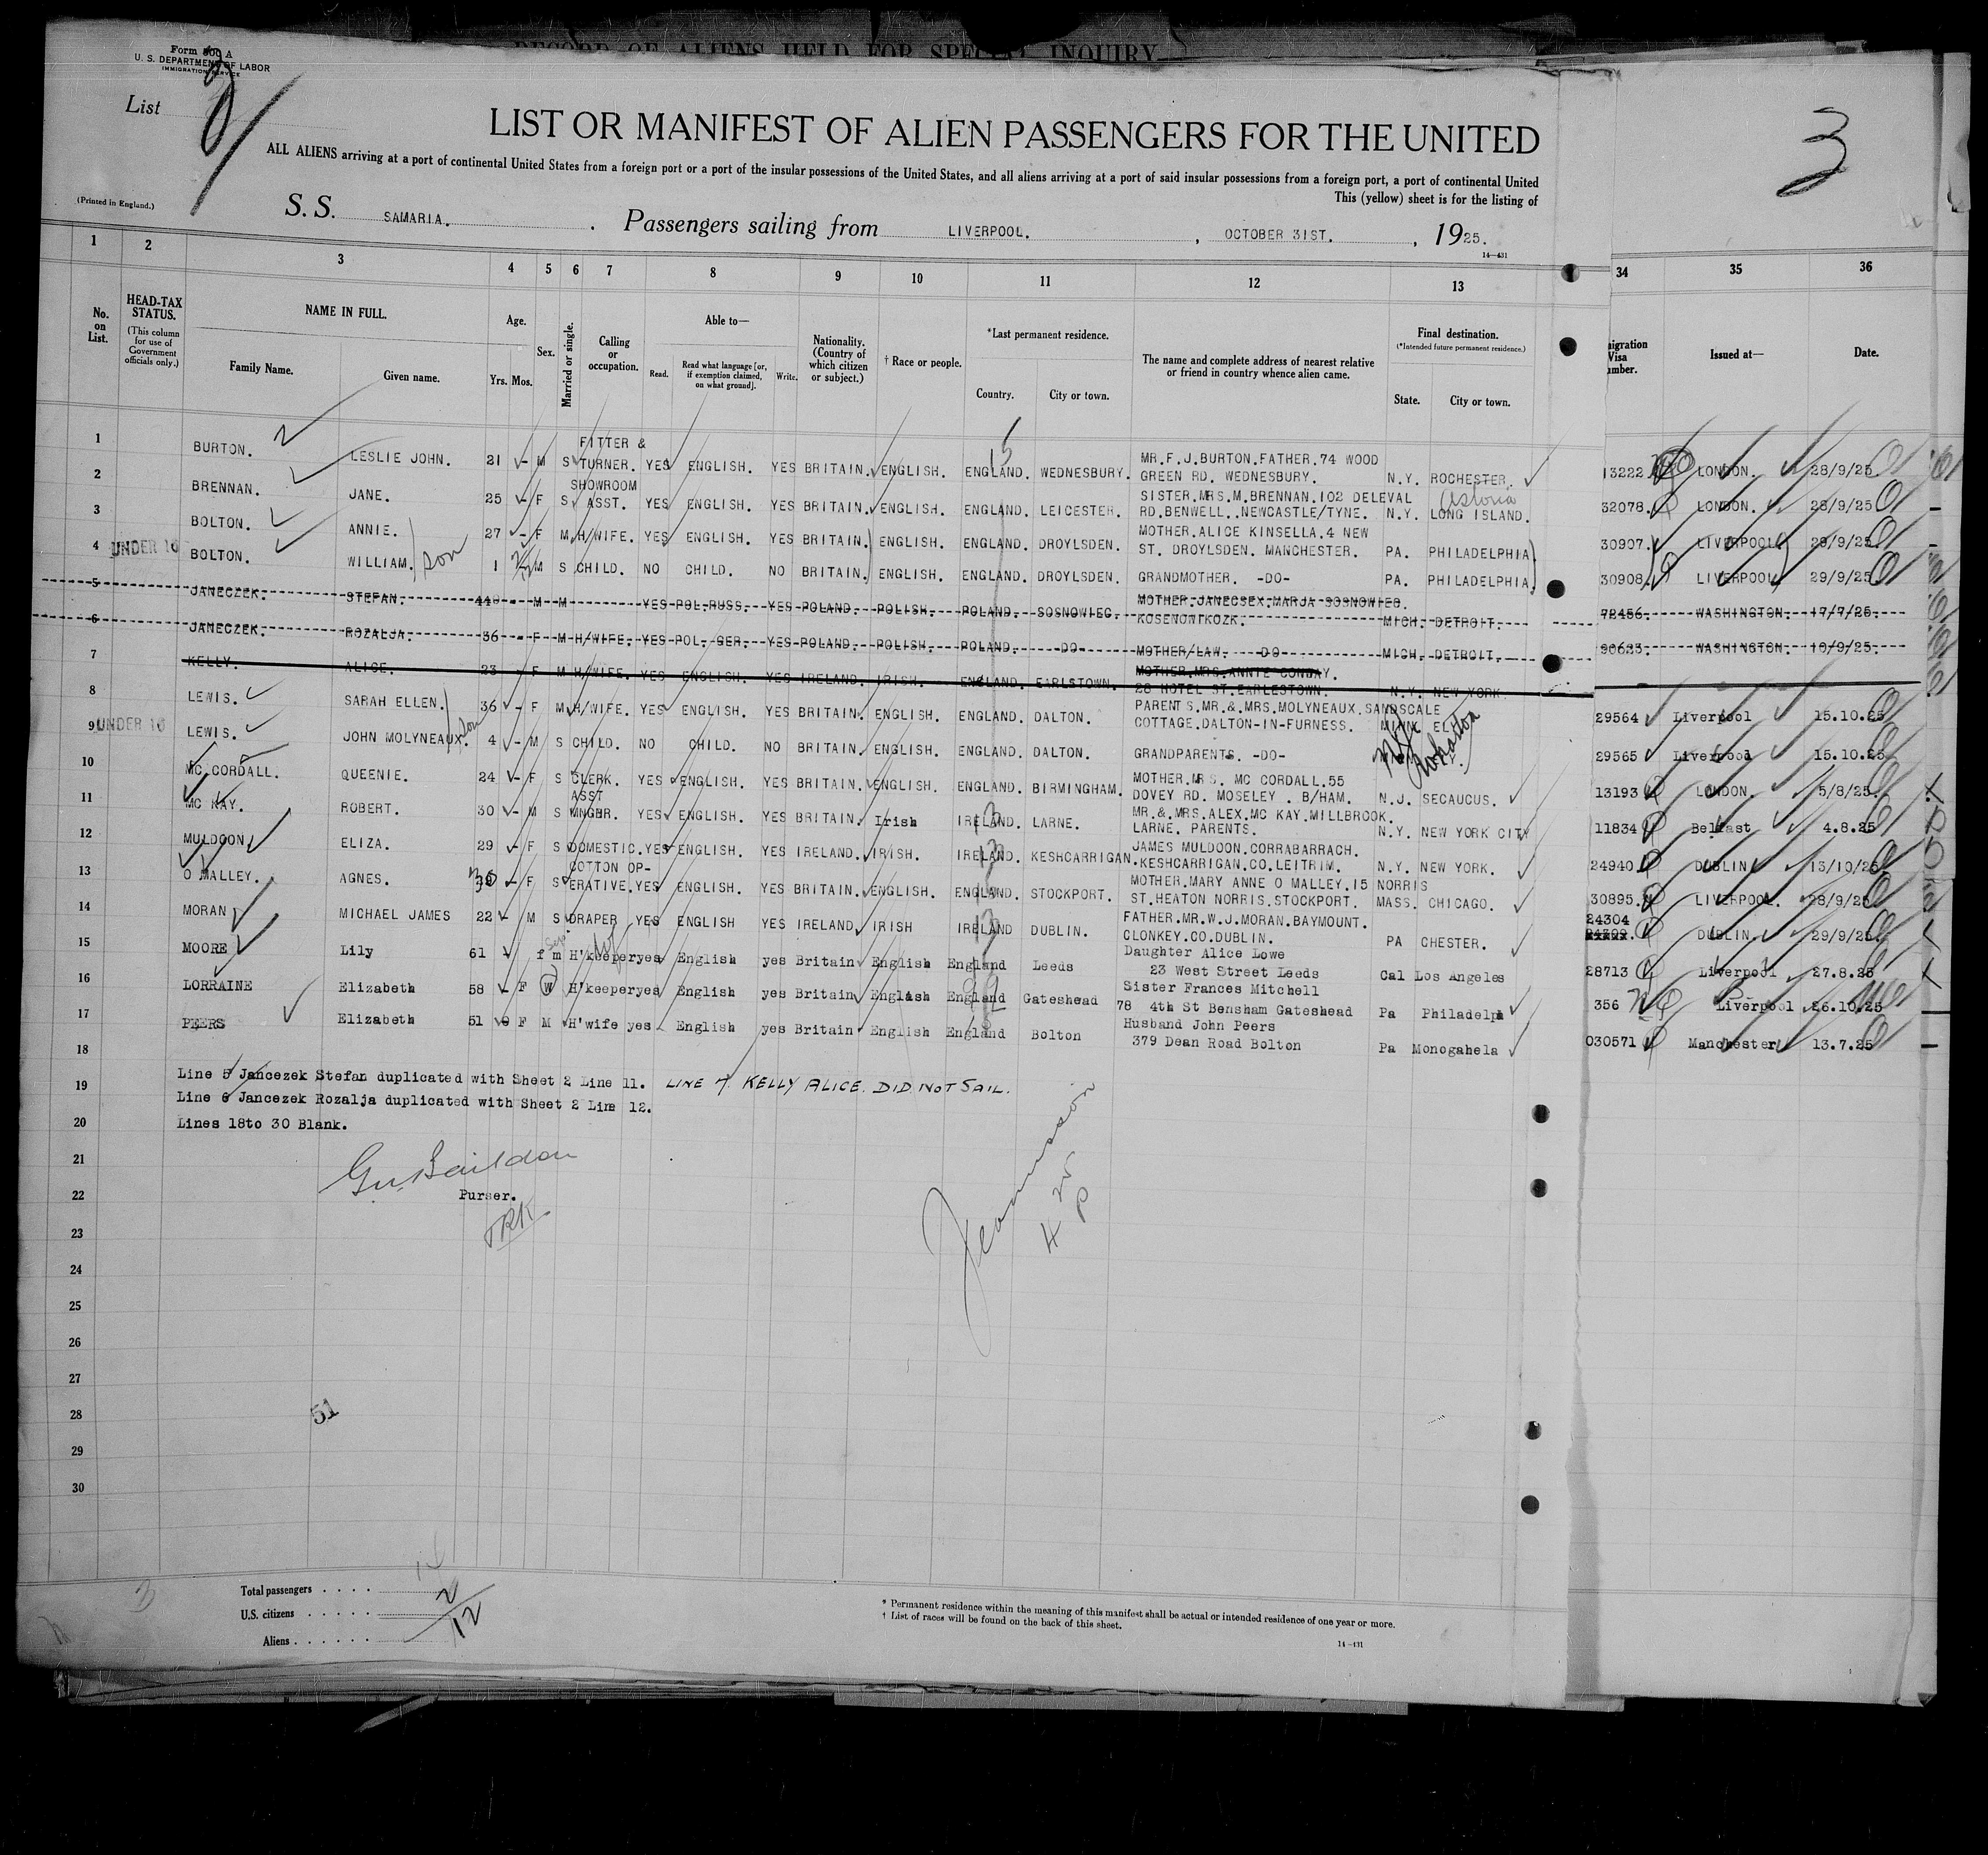 RECORD OF ALIENS HELD FOR SPECIAL INQUIRY
Form 500 A
U. S. DEPARTMENT OF LABOR
IMMIGRATION SERVICE
List
3
LIST OR MANIFEST OF ALIEN PASSENGERS FOR THE UNITED
ALL ALIENS arriving at a port of continental United States from a foreign port or a port of the insular possessions of the United States, and all aliens arriving at a port of said insular possessions from a foreign port, a port of continental United
This (yellow) sheet is for the listing of
(Printed in England.)
S. S. SAMARIA. Passengers sailing from LIVERPOOL. , OCTOBER 31ST. , 1925.
14—431
1 2 3 4 5 6 7 8 9 10 11 12 13 34 35 36
No. on List.
HEAD-TAX STATUS.
(This column for use of Government officials only.)
NAME IN FULL.
Family Name. Given name.
Age.
Yrs. Mos.
Sex.
Married or single.
Calling or occupation.
Able to—
Read. Read what language [or, if exemption claimed, on what ground]. Write.
Nationality. (Country of which citizen or subject.)
† Race or people.
*Last permanent residence.
Country. City or town.
The name and complete address of nearest relative or friend in country whence alien came.
Final destination.
(*Intended future permanent residence.)
State. City or town.
Issued at—
Date.
15
1 BURTON. LESLIE JOHN. 21 - M S FITTER & TURNER. YES ENGLISH. YES BRITAIN. ENGLISH. ENGLAND. WEDNESBURY. MR.F.J.BURTON.FATHER.74 WOOD GREEN RD. WEDNESBURY. N.Y. ROCHESTER. 13222 LONDON. 28/9/25
2 BRENNAN. JANE. 25 - F S SHOWROOM ASST. YES ENGLISH. YES BRITAIN. ENGLISH. ENGLAND. LEICESTER. SISTER.MRS.M.BRENNAN.102 DELEVAL RD.BENWELL..NEWCASTLE/TYNE. N.Y. LONG ISLAND. Astoria 32078. LONDON. 28/9/25
3 BOLTON. ANNIE. 27 - F M H/WIFE. YES ENGLISH. YES BRITAIN. ENGLISH. ENGLAND. DROYLSDEN. MOTHER.ALICE KINSELLA.4 NEW ST. DROYLSDEN. MANCHESTER. PA. PHILADELPHIA 30907. LIVERPOOL 29/9/25.
4 UNDER 16 BOLTON. WILLIAM. son 1 M S CHILD. NO CHILD. NO BRITAIN. ENGLISH. ENGLAND. DROYLSDEN. GRANDMOTHER. -DO- PA. PHILADELPHIA. 30908. LIVERPOOL 29/9/25
5 JANECZEK. STEFAN. M M YES POL.RUSS. YES POLAND. POLISH. POLAND. SOSNOWIEC. MOTHER.JANECSEX.MARJA SOSNOWIEC. KOSENOWTKOZK. MICH. DETROIT. 72456. WASHINGTON. 17/7/25.
6 JANECZEK. ROZALJA. 36 - F M H/WIFE. YES POL. GER. YES POLAND. POLISH. POLAND. DO- MOTHER/LAW. -DO- MICH. DETROIT. 90623. WASHINGTON. 10/9/25.
7 KELLY. ALICE. 23 - F M H/WIFE. YES ENGLISH. YES IRELAND. IRISH. ENGLAND. EARLSTOWN. MOTHER.MRS.ANNIE CONWAY. 28 HOTEL ST.EARLESTOWN. N.Y. NEW YORK.
8 LEWIS. SARAH ELLEN. 36 - F M H/WIFE. YES ENGLISH. YES BRITAIN. ENGLISH. ENGLAND. DALTON. PARENTS.MR.& MRS.MOLYNEAUX.SANDSCALE COTTAGE.DALTON-IN-FURNESS. MINN. ELY. 29564 Liverpool 15.10.25
9 UNDER 16 LEWIS. JOHN MOLYNEAUX. son 4 - M S CHILD. NO CHILD. NO BRITAIN. ENGLISH. ENGLAND. DALTON. GRANDPARENTS. -DO- 29565 Liverpool 15.10.25
10 MC CORDALL. QUEENIE. 24 - F S CLERK. YES ENGLISH. YES BRITAIN. ENGLISH. ENGLAND. BIRMINGHAM. MOTHER.MRS. MC CORDALL.55 DOVEY RD. MOSELEY . B/HAM. N.J. SECAUCUS. 13193 LONDON. 5/8/25.
11 MC KAY. ROBERT. 30 - M S ASST MNGER. YES ENGLISH. YES BRITAIN. Irish IRELAND. LARNE. MR.& MRS.ALEX.MC KAY.MILLBROOK. LARNE. PARENTS. N.Y. NEW YORK CITY 11834 Belfast 4.8.25
12 MULDOON. ELIZA. 29 - F S DOMESTIC. YES ENGLISH. YES IRELAND. IRISH. IRELAND. KESHCARRIGAN. JAMES MULDOON.CORRABARRACH. KESHCARRIGAN.CO.LEITRIM. N.Y. NEW YORK. 24940. DUBLIN 13/10/25
13 O MALLEY. AGNES. 39 - F S COTTON OP- ERATIVE. YES ENGLISH. YES BRITAIN. ENGLISH. ENGLAND. STOCKPORT. MOTHER.MARY ANNE O MALLEY.15 NORRIS ST.HEATON NORRIS.STOCKPORT. MASS. CHICAGO. 30895. LIVERPOOL. 28/9/25
14 MORAN MICHAEL JAMES 22 - M S DRAPER YES ENGLISH YES IRELAND IRISH IRELAND DUBLIN. FATHER.MR.W.J.MORAN.BAYMOUNT. CLONKEY.CO.DUBLIN. PA CHESTER. 24304 DUBLIN. 29/9/25.
15 MOORE Lily 61 f m H'keeper yes English yes Britain English England Leeds Daughter Alice Lowe 23 West Street Leeds Cal Los Angeles 28713 Liverpool 27.8.25
16 LORRAINE Elizabeth 58 - F W H'keeper yes English yes Britain English England Gateshead Sister Frances Mitchell 78 4th St Bensham Gateshead Pa Philadelph 356 Liverpool 26.10.25
17 PEERS Elizabeth 51 F M H'wife yes English yes Britain English England Bolton Husband John Peers 379 Dean Road Bolton Pa Monogahela 030571 Manchester 13.7.25
18
19 Line 5 Jancezek Stefan duplicated with Sheet 2 Line 11. LINE 7. KELLY ALICE. DID NOT SAIL.
Line 6 Jancezek Rozalja duplicated with Sheet 2 Line 12.
20 Lines 18to 30 Blank.
21
22 Purser.
23
24
25
26
27
28 51
29
30
Total passengers . . . .
U.S. citizens . . . . .
Aliens . . . . . .
2
12
3
* Permanent residence within the meaning of this manifest shall be actual or intended residence of one year or more.
† List of races will be found on the back of this sheet.
14—431